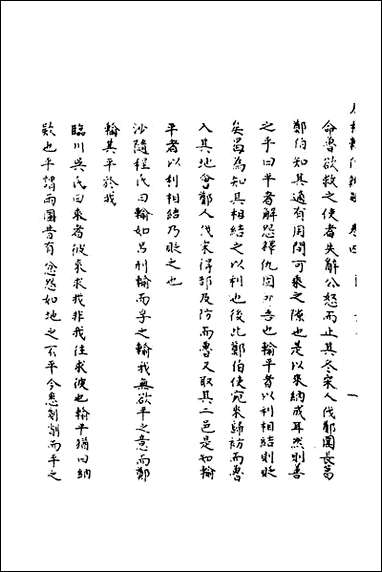 命魯欲救之使者失辭公怒而止其冬宋人伐鄭圍長葛
鄭伯知其適有用間可乘之隙也是以來納成耳然則善
之乎曰平者解怨釋仇固所善也輸平者以利相結則貶
矣曷為知其相結之以利也後此鄭伯使宛來歸祊而魯
入其地會鄭人伐宋得郜及防而魯又取其二邑是知輸
平者以利相結乃貶之也
沙隨程氏曰輸如呂刑輸而孚之輸我無欲平之意而鄭
輸其平於我
臨川吳氏曰來者彼來求我非我往求彼也輸平猶曰納
款也平謂兩國昔有忿怨如地之不平今悉剗削而平之